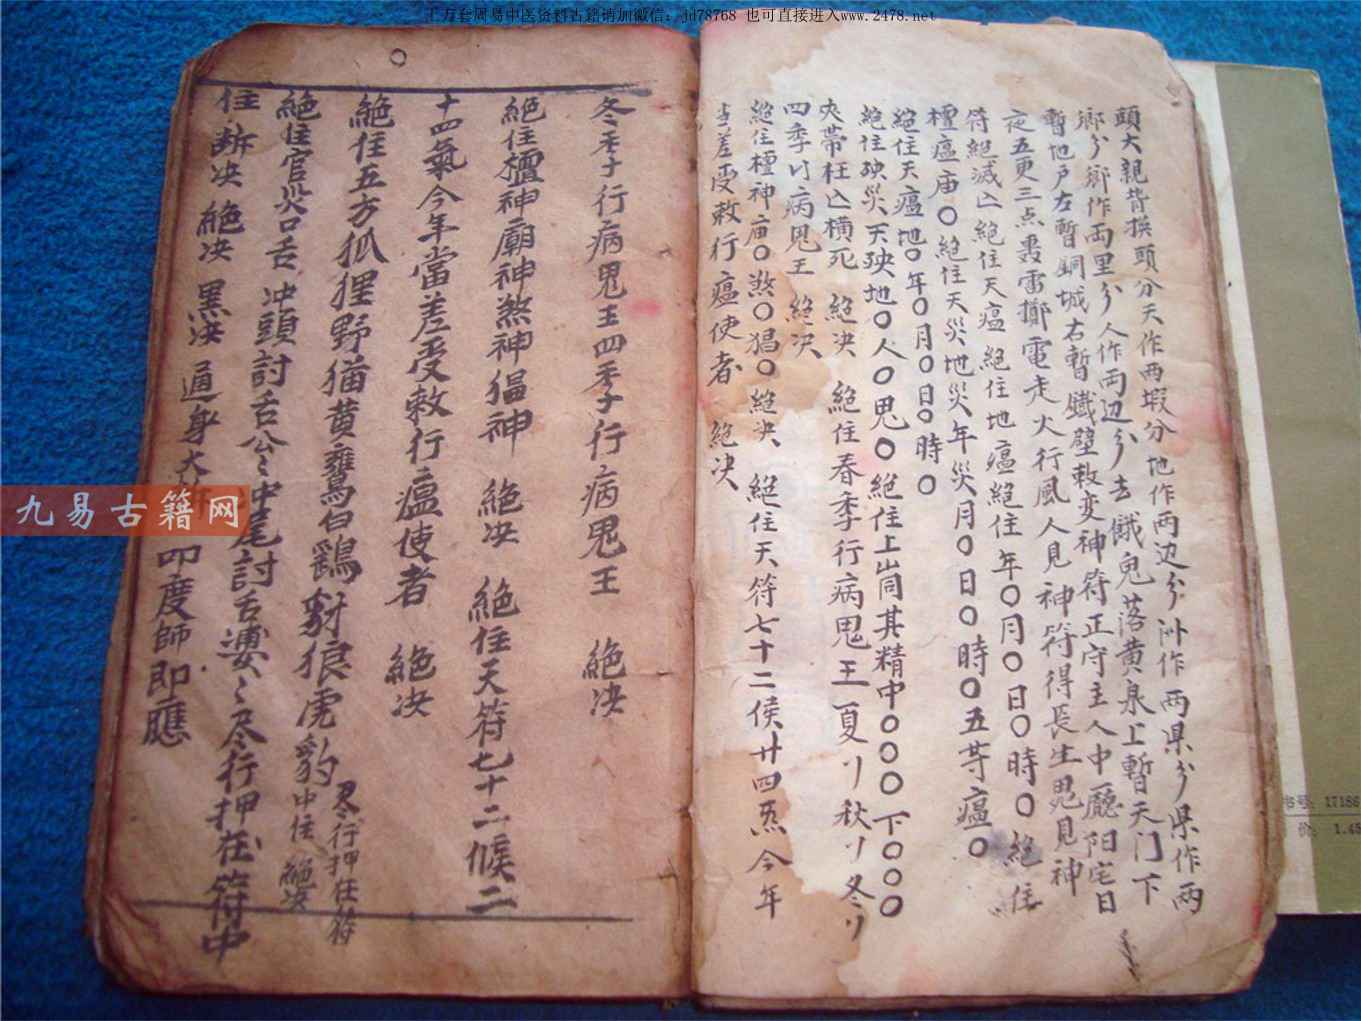 万套周易中医资料古籍请加微信：jd78768 也可直接进入www.2478.net
頭大親背换頭分天作两塅分地作两边分汌作两県分県作两
鄉分鄉作両里分人作両边分去餓鬼落黄泉上暫天门下
暫地户左暫銅城右暫鐵壁敕变神符正守主人中廳阳宅日
夜五更三点轰雷擲電走火行風人見神符得長生鬼見神
符絕滅亡絕住天瘟絕住地瘟絕住年〇月〇日〇時〇絕住
檀瘟庙〇絕住天災地災年災月〇日〇時〇五䒭瘟〇
絕住天瘟地〇年〇月〇日〇時〇
絕住殃災天殃地〇人〇鬼〇絕住上峝其精中〇〇〇下〇〇〇
夾帶枉亡橫死 絕决 絕住春季行病鬼王夏リ秋リ冬リ
四季リ病鬼王 絕决
絕住檀神庙〇煞〇猖〇絕决 絕住天符七十二侯廿四炁今年
当差受敕行瘟使者 絕决
冬季行病鬼王四季行病鬼王 絕决
絕住檀神廟神煞神猖神 絕决 絕住天符七十二候二
十四氣今年當差受敕行瘟使者 絕决
絕住五方狐狸野猫黄鶯白鷄豺狼虎豹尽行押在符中住 絕决
絕住官災口舌冲頭討舌公〻冲尾討舌婆〻尽行押在符中
住 断决 絕决 黑决 通身大
叩度師即應
九易古籍网
书号：17186
价：1.45